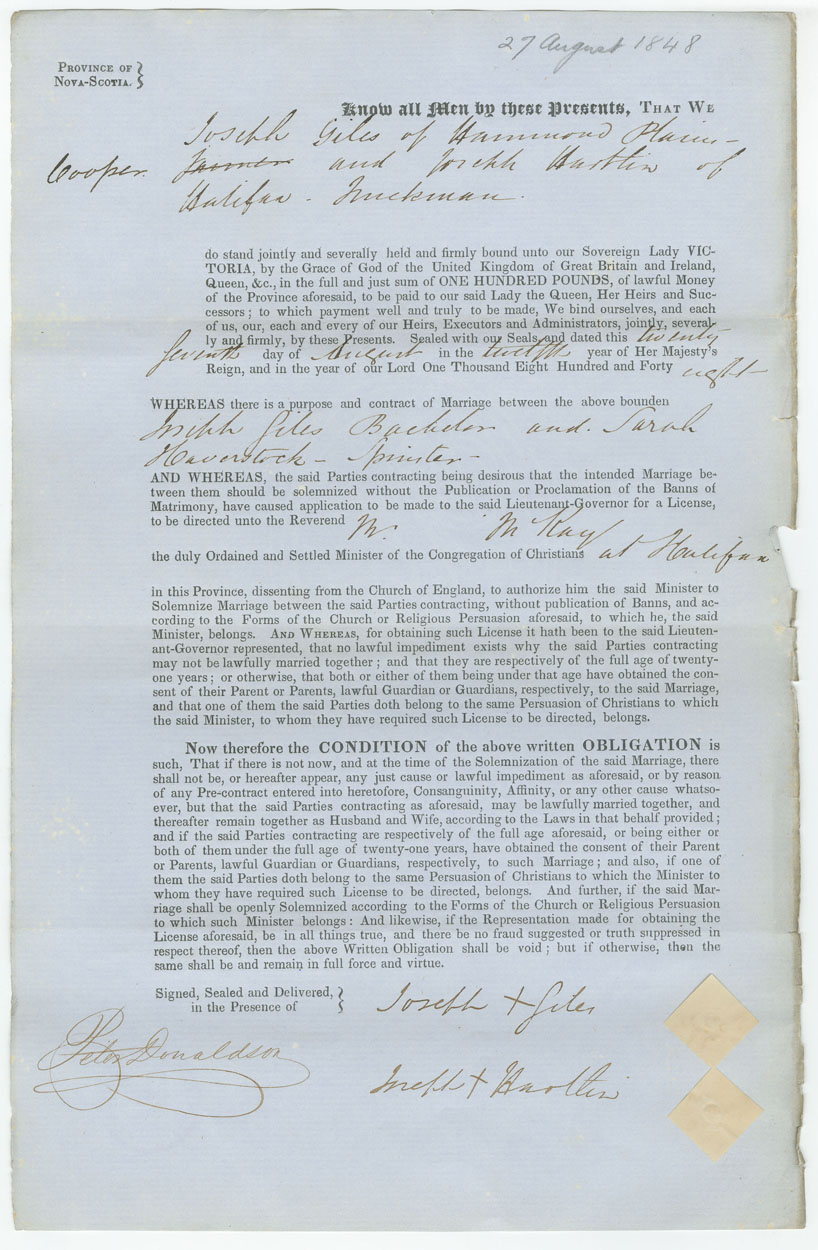 27 August 1848
PROVINCE OF
NOVA-SCOTIA.
Know all Men by these Presents, THAT WE
Joseph Giles of Hammond Plains -
Cooper. Farmer and Joseph Hartlin of
Halifax - Truckman.
do stand jointly and severally held and firmly bound unto our Sovereign Lady VIC-
TORIA, by the Grace of God of the United Kingdom of Great Britain and Ireland,
Queen, &c., in the full and just sum of ONE HUNDRED POUNDS, of lawful Money
of the Province aforesaid, to be paid to our said Lady the Queen, Her Heirs and Suc-
cessors; to which payment well and truly to be made, We bind ourselves, and each
of us, our, each and every of our Heirs, Executors and Administrators, jointly, several-
ly and firmly, by these Presents. Sealed with our Seals and dated this twenty
seventh day of August in the twelfth year of Her Majesty's
Reign, and in the year of our Lord One Thousand Eight Hundred and Forty eight -
WHEREAS there is a purpose and contract of Marriage between the above bounden
Joseph Giles Bachelor and Sarah
Haverstock - Spinster -
AND WHEREAS, the said Parties contracting being desirous that the intended Marriage be-
tween them should be solemnized without the Publication or Proclamation of the Banns of
Matrimony, have caused application to be made to the said Lieutenant-Governor for a License,
to be directed unto the Reverend Mr. McKay
the duly Ordained and Settled Minister of the Congregation of Christians at Halifax
in this Province, dissenting from the Church of England, to authorize him the said Minister to
Solemnize Marriage between the said Parties contracting, without publication of Banns, and ac-
cording to the Forms of the Church or Religious Persuasion aforesaid, to which he, the said
Minister, belongs. AND WHEREAS, for obtaining such License it hath been to the said Lieuten-
ant-Governor represented, that no lawful impediment exists why the said Parties contracting
may not be lawfully married together; and that they are respectively of the full age of twenty-
one years; or otherwise, that both or either of them being under that age have obtained the con-
sent of their Parent or Parents, lawful Guardian or Guardians, respectively, to the said Marriage,
and that one of them the said Parties doth belong to the same Persuasion of Christians to which
the said Minister, to whom they have required such License to be directed, belongs.
Now therefore the CONDITION of the above written OBLIGATION is
such, That if there is not now, and at the time of the Solemnization of the said Marriage, there
shall not be, or hereafter appear, any just cause or lawful impediment as aforesaid, or by reason
of any Pre-contract entered into heretofore, Consanguinity, Affinity, or any other cause whatso-
ever, but that the said Parties contracting as aforesaid, may be lawfully married together, and
thereafter remain together as Husband and Wife, according to the Laws in that behalf provided;
and if the said Parties contracting are respectively of the full age aforesaid, or being either or
both of them under the full age of twenty-one years, have obtained the consent of their Parent
or Parents, lawful Guardian or Guardians, respectively, to such Marriage; and also, if one of
them the said Parties doth belong to the same Persuasion of Christians to which the Minister to
whom they have required such License to be directed, belongs. And further, if the said Mar-
riage shall be openly Solemnized according to the Forms of the Church or Religious Persuasion
to which such Minister belongs: And likewise, if the Representation made for obtaining the
License aforesaid, be in all things true, and there be no fraud suggested or truth suppressed in
respect thereof, then the above Written Obligation shall be void; but if otherwise, then the
same shall be and remain in full force and virtue.
Signed, Sealed and Delivered,
in the Presence of
Joseph + Giles
Peter Donaldson
Joseph + Hartlin